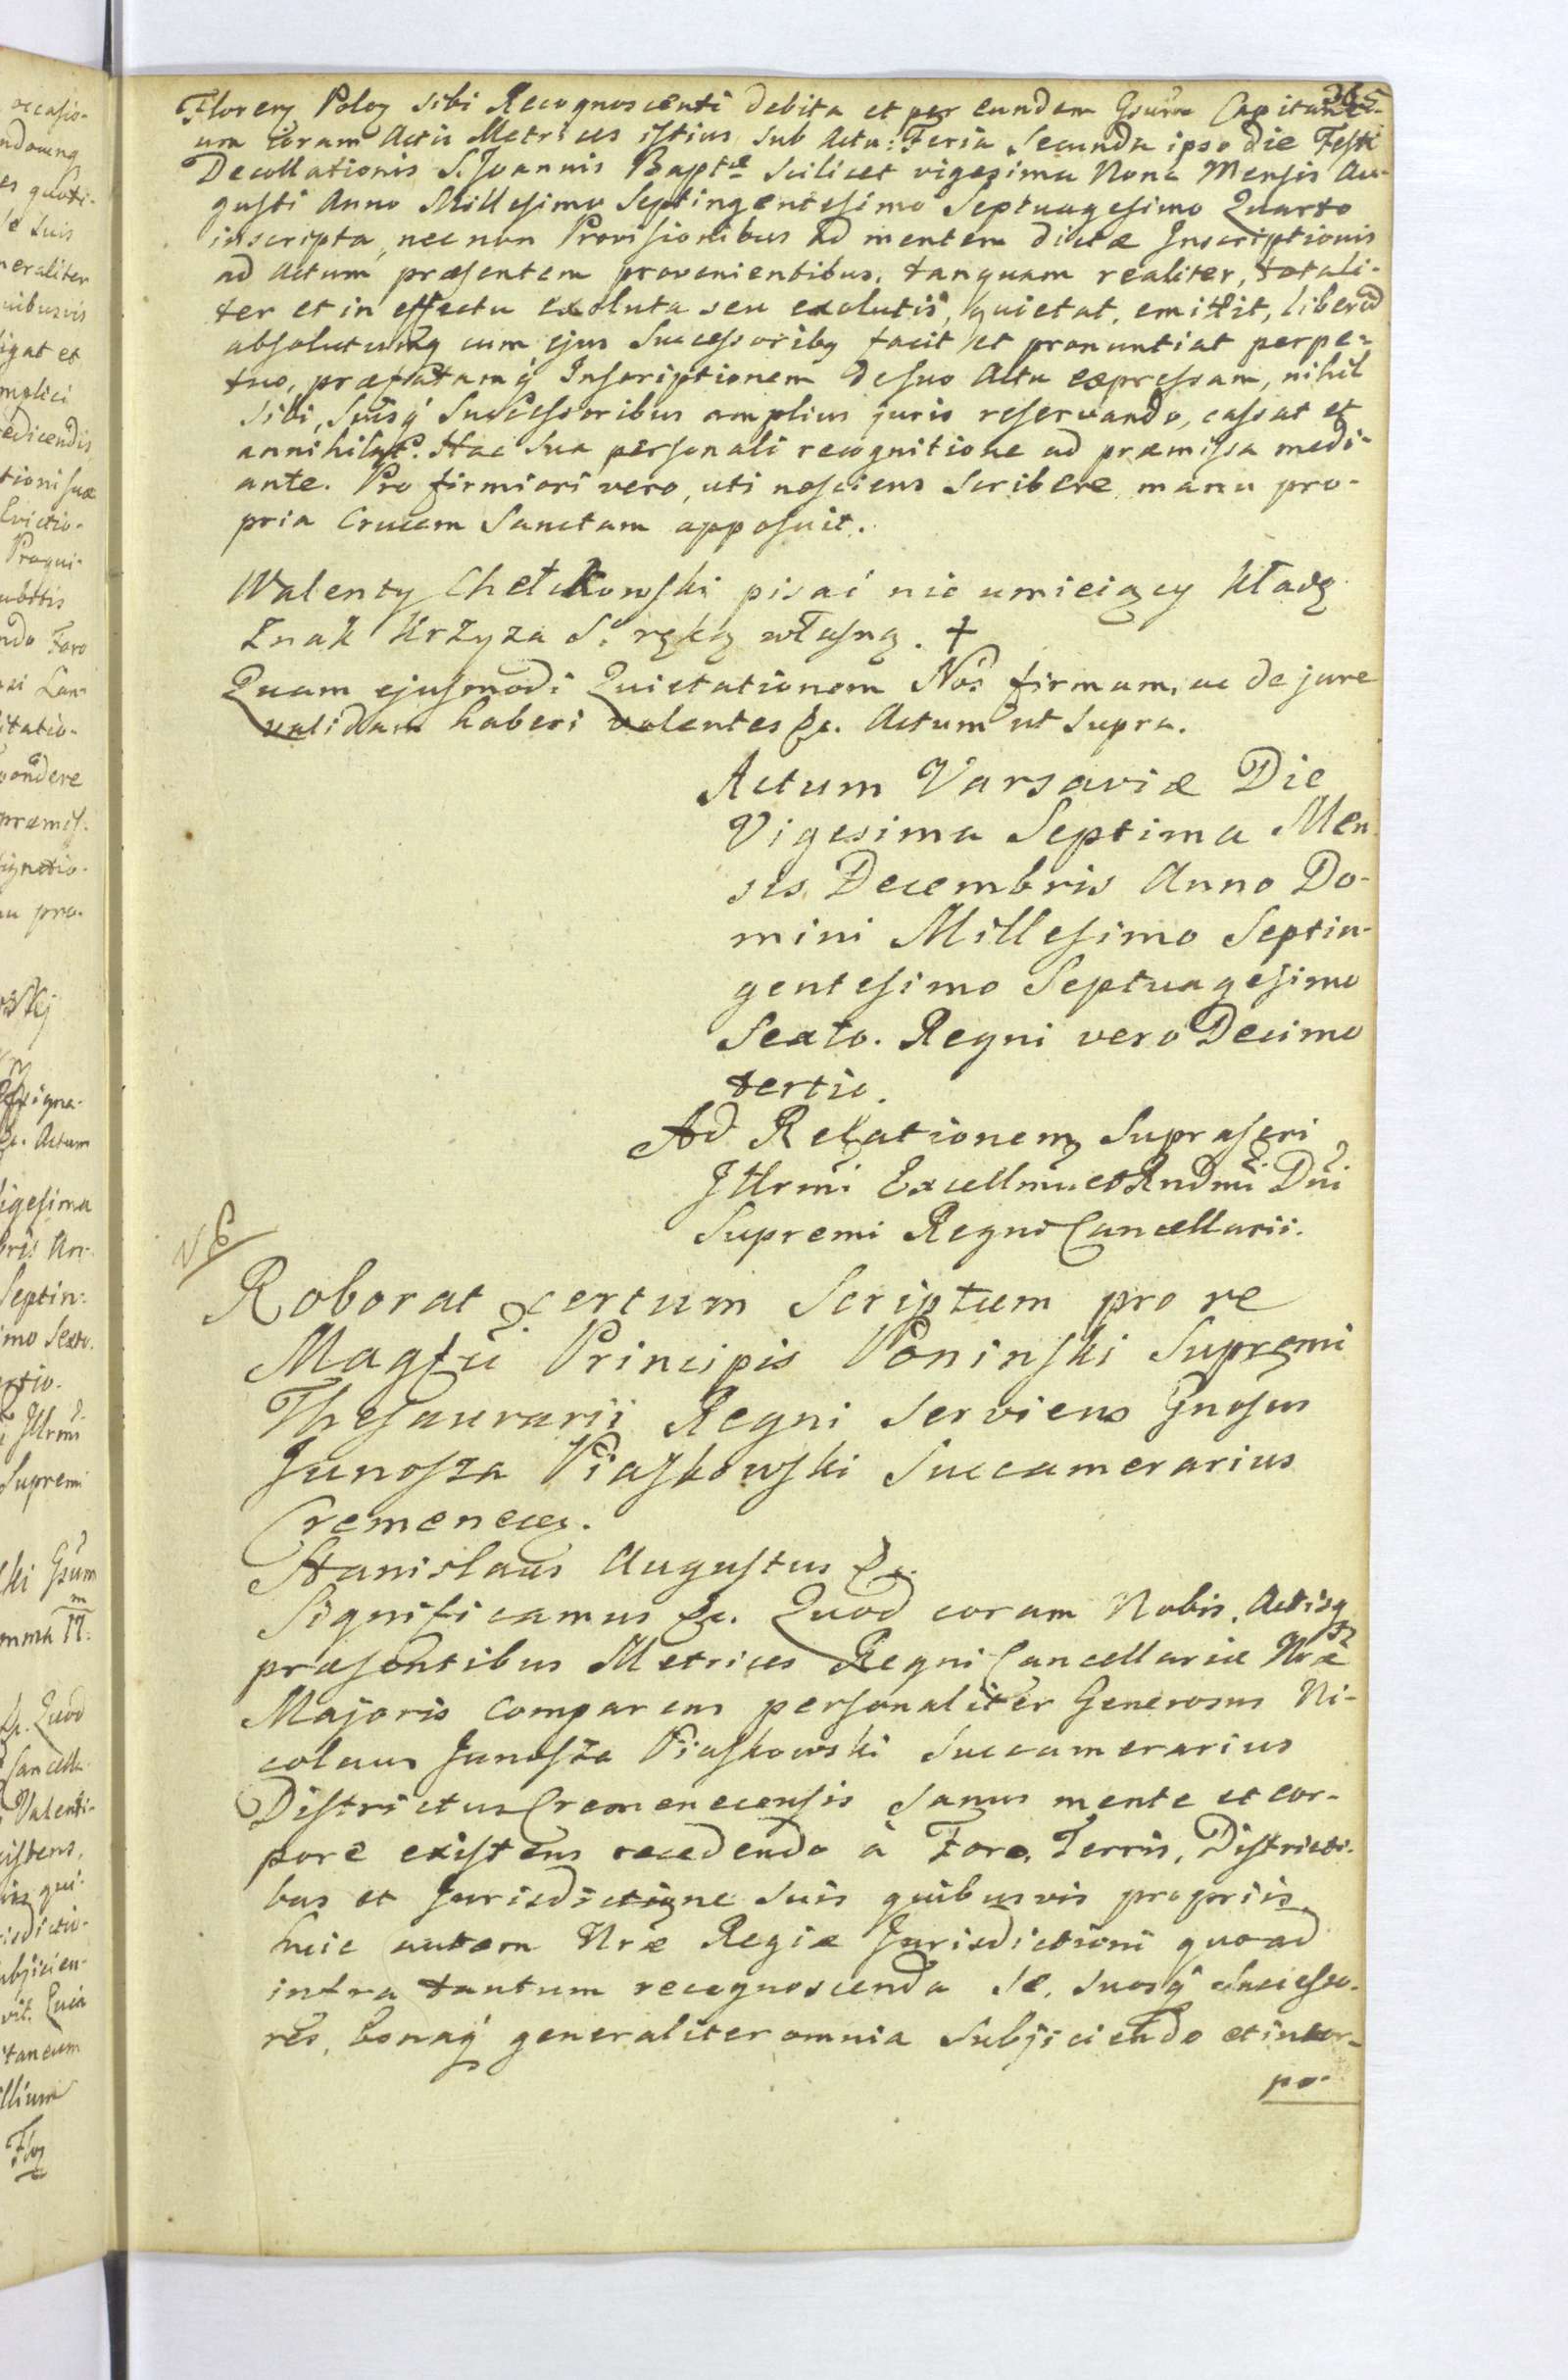 365
Floreꝝ Poloꝝ sibi Recognoscenti debita et per eundem Gsum Capitane-
um coram Actis Metrices istius sub Actu: Feria Secunda ipso die Festi
Decollationis S. Joannis Baptæ scilicet vigesima Nona Mensis Au-
gusti Anno Millesimo Septingentesimo Septuagesimo Quarto
inscripta, necnon Provisionibus ad mentem dictæ Inscriptionis
ad Actum præsentem provenientibus, tanquam realiter, totali-
ter et in effectu exoluta seu exolutis, quietat, emittit, liberūq
absolutumq cum ejus Successoribq facit et pronuntiat perpe-
tuo, præfatamq́ Inscriptionem de suo Actu expressam, nihil
sibi, suisq́ Successoribus amplius juris reservando, cassat et
annihilat. Hac sua personali recognitione ad præmissa medi-
ante. Pro firmiori vero, uti nesciens scribere manu pro-
pria Crucem Sanctam apposuit.
Walenty Chełkowski pisać nie umieiący kładę
Znak Krzyza S. ręką własną. +
Quam ejusmodi Quietationem Nos firmam, ac de jure
validam haberi volentes &c. Actum ut supra.
Actum Varsaviæ Die
Vigesima Septima Men-
sis Decembris Anno Do-
mini Millesimo Septin-
gentesimo Septuagesimo
Sexto. Regni vero Decimo
tertio.
Ad Relationem Suprascri
Jllrmi Excellmi et Rndmi Dni
Supremi Regni Cancellarii.
Roborat certum Scriptum pro re
Magfci Principis Poninski Supremi
Thesaurarii Regni serviens Gnosus
Junosza Piaskowski Succamerarius
Cremeneceꝝ.
Stanislaus Augustus &c.
Significamus &c. Quod coram Nobis, Actisq
præsentibus Metrices Regni Cancellariæ Nræ
Majoris Comparens personaliter Generosus Ni-
colaus Junosza Piaskowski Succamerarius
Districtus Cremenecensis sanus mente et cor-
pore existens recedendo à Foro, Terris, Districti-
bus et Jurisdictione suis quibusvis propriis,
huic autem Nræ Regiæ Jurisdictioni quoad
infra tantum recognoscenda se, suosq́ Successo-
res, bonaq́ generaliter omnia subjiciendo et incor-
po-